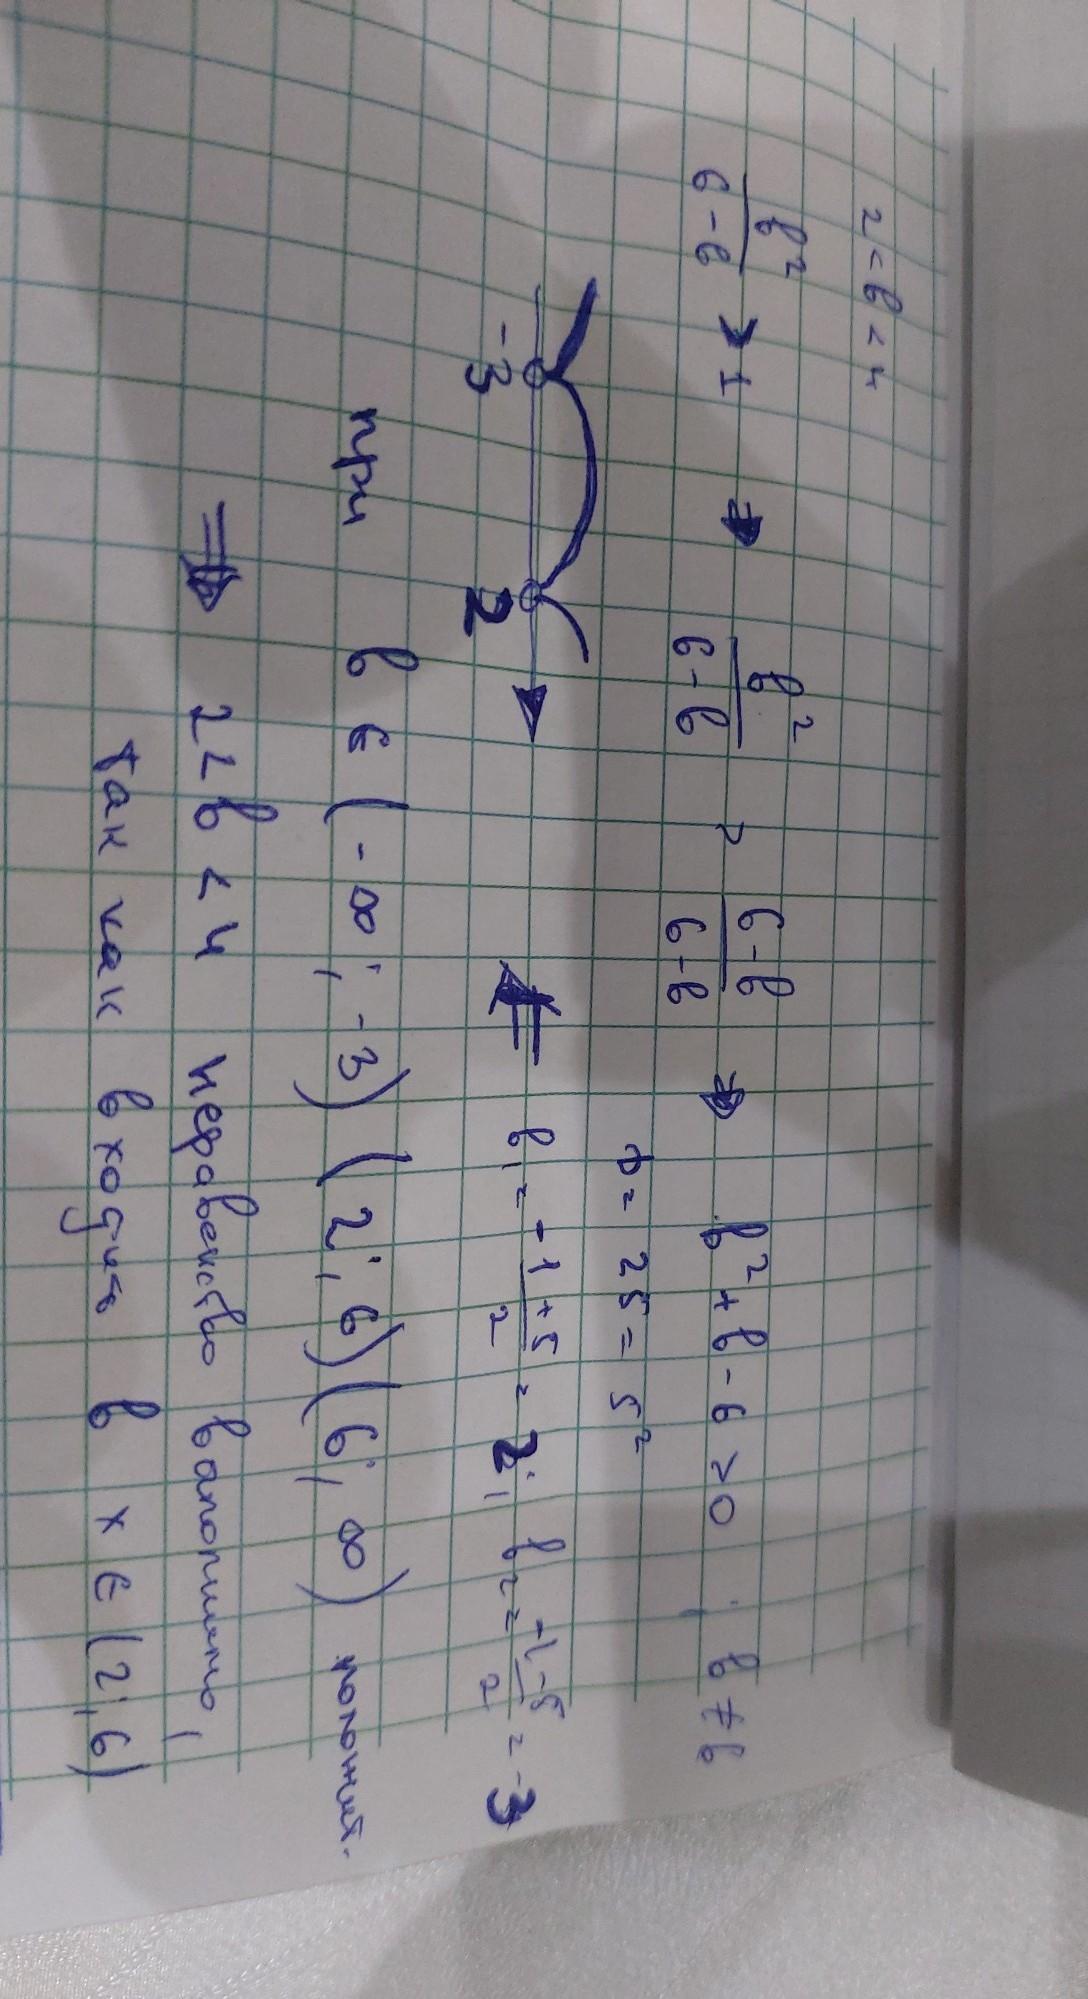 2 < b < 4
b² / 6-b > 1 ⇒ b² / 6-b > 6-b / 6-b ⇒ b² + b - 6 > 0 ; b ≠ 6
D = 25 = 5²
-3 2 ⇐ b₁ = -1+5 / 2 = 2; b₂ = -1-5 / 2 = -3
при b ∈ (-∞; -3) (2; 6) (6; ∞) полож ит.
⇒ 2<b<4 неравенство вaполнимo,
так как входит в x ∈ (2; 6)